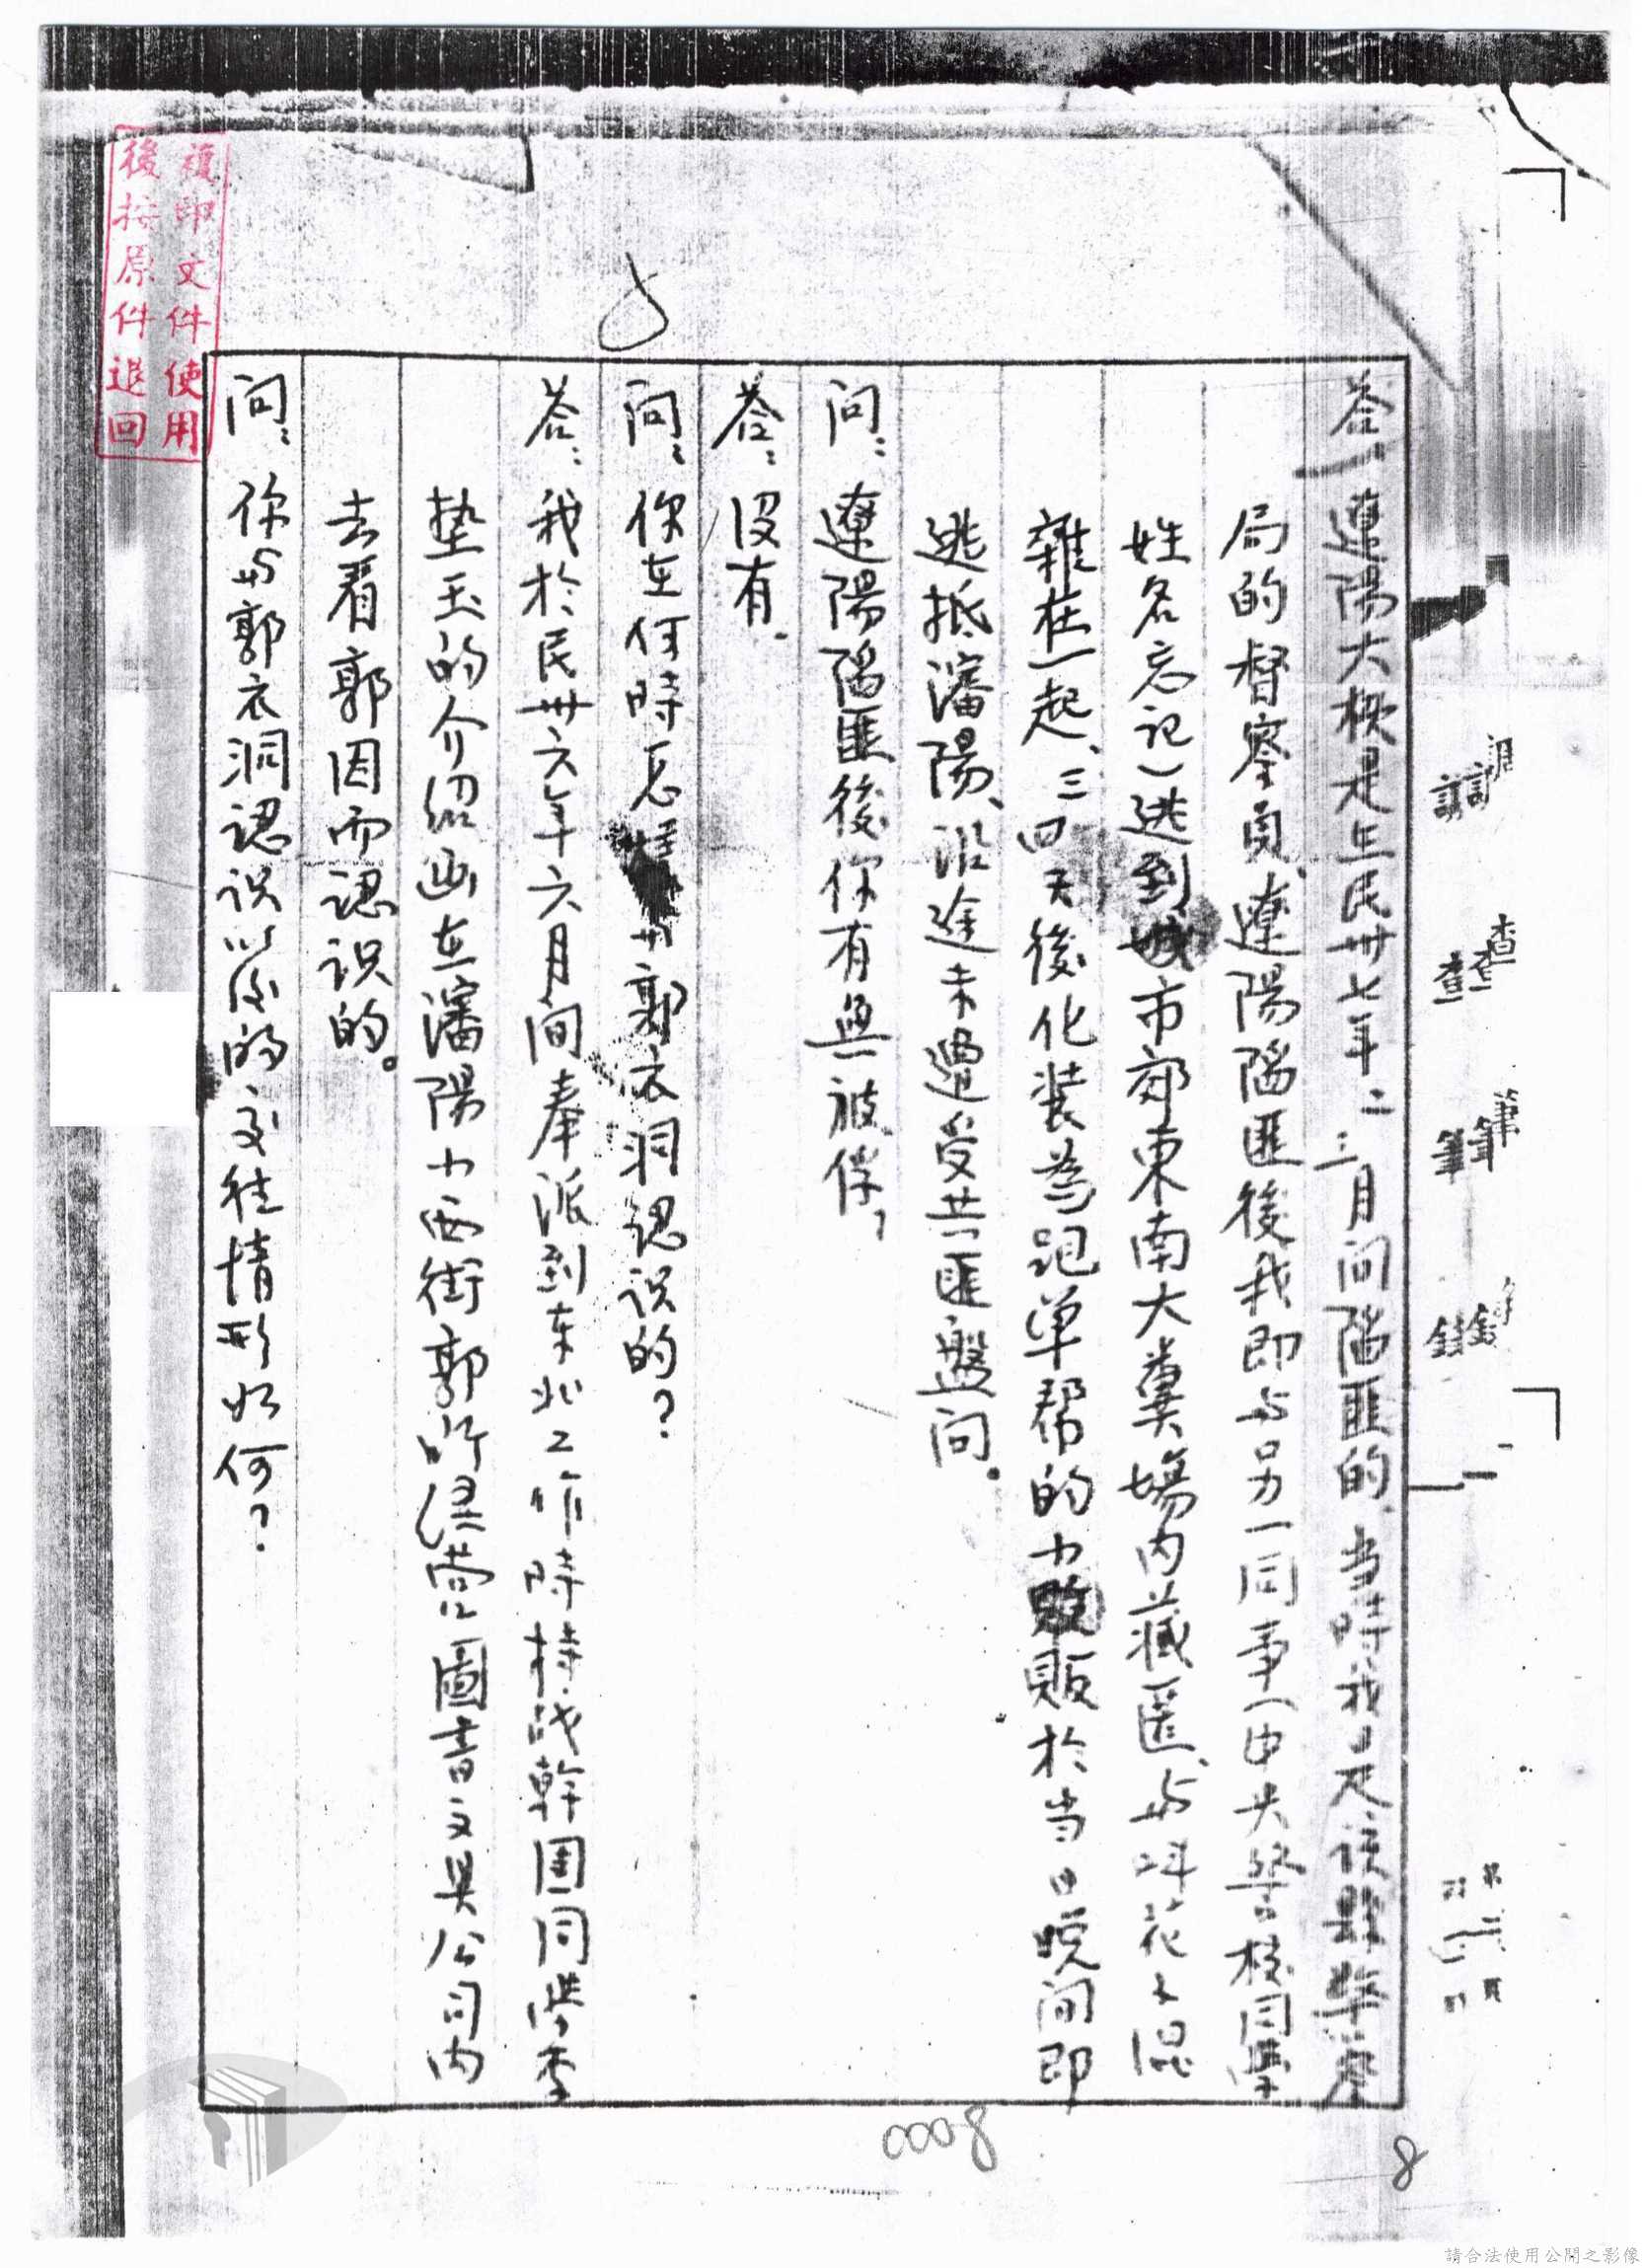 調查筆錄
答、遼陽大概是在民卅七年二三月间陷匪的、当時我是該縣警察
局的督察員、遼陽陷匪後我即与另一同事(中央警校同學
姓名忘记)逃到城市郊東南大糞場内藏匿、与叫花子混
雜在一起、三四天後化装為跑单帮的小販於当日晚间即
逃抵瀋陽、沿途未遭受共匪盤问。
问：遼陽陷匪後你有無被俘？
答：没有.
问：你在何時怎様与郭衣洞認识的？
答：我於民卅六年六月间奉派到东北工作時持战幹团同學李
墊玉的介绍函在瀋陽小西街郭所经营圖書文具公司内
去看郭因而認识的。
问：你与郭衣洞認识以後的交往情形如何？
複印文件使用
後按原件退回
0008
8
請合法使用公開之影像